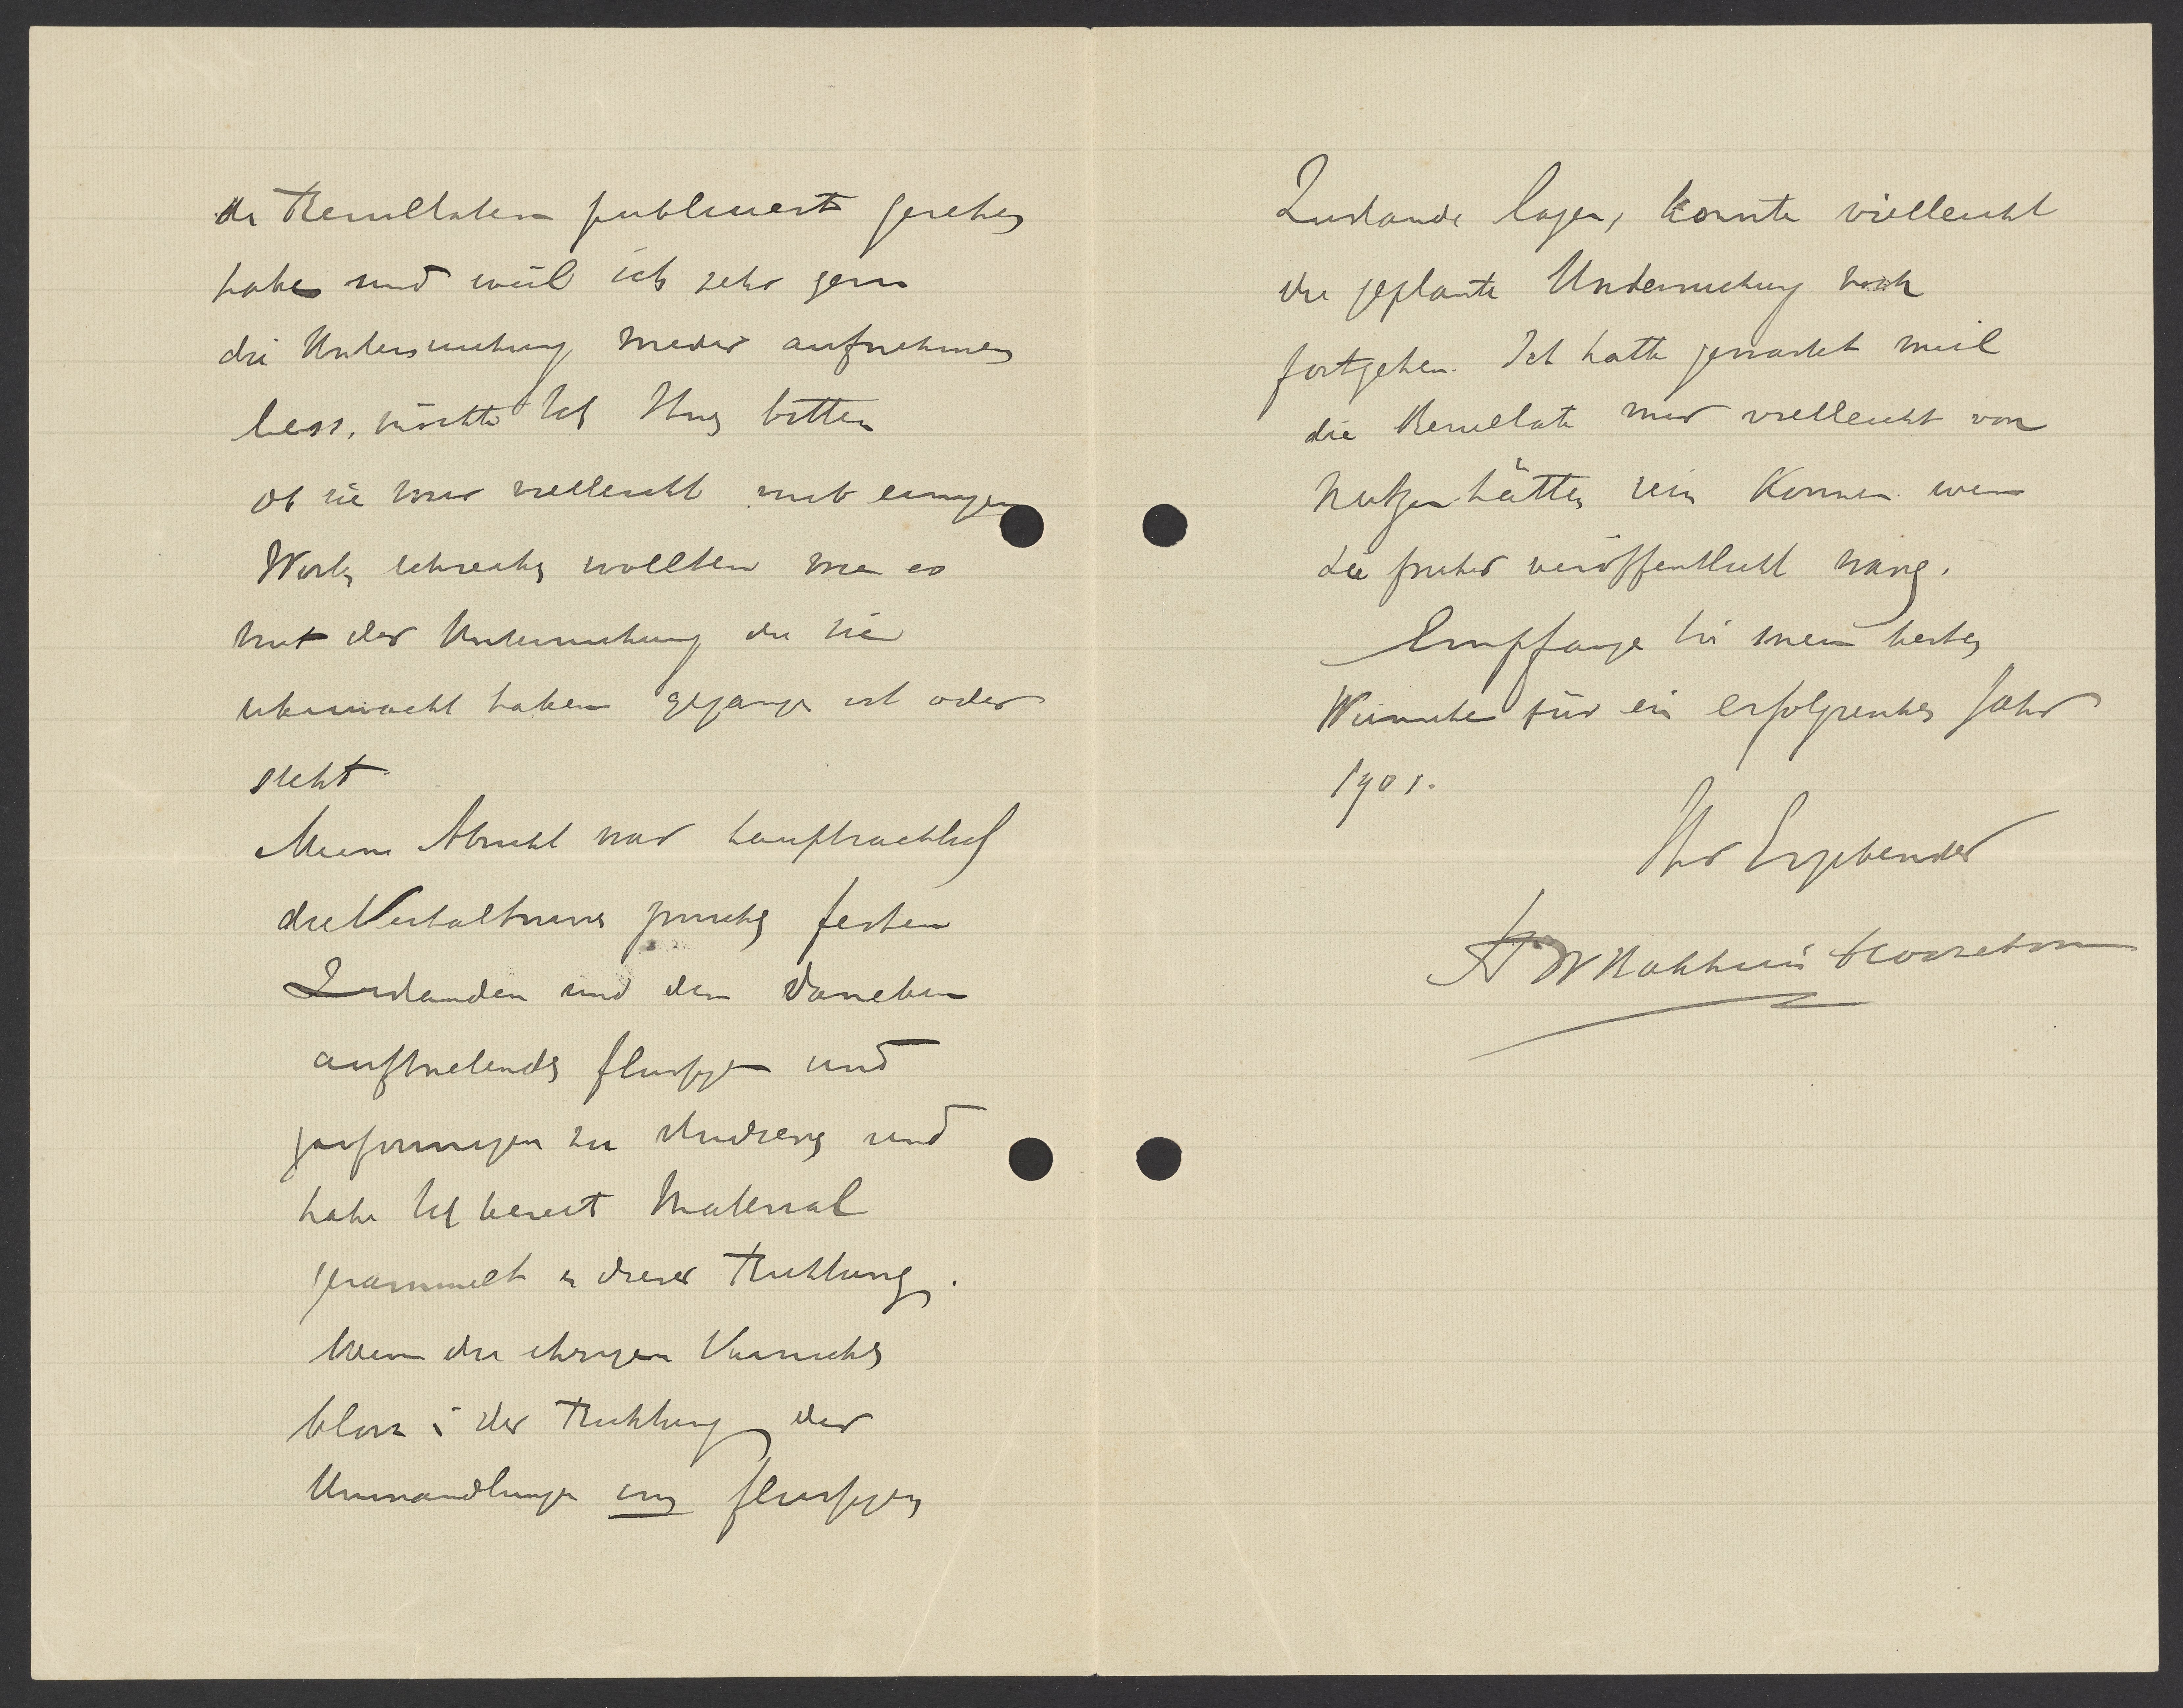 die Resultaten publiciert gesehen
habe und weil ich sehr gern
die Untersuchung wieder aufnehmen
liess, möchte Ich Ihnen bitten
ob sie mir vielleicht mit einigen
Worten schreiben wollten wie es
mit der Untersuchung die sie
überwacht haben gegangen ist oder
steht.
Meine Absicht war hauptsachlich
die Verhaltnisse zwischen festen
Zustanden und den daneben
auftretenden flussigen und
gasformigen zu studieren und
habe Ich bereit Material
gesammelt in dieser Richtung.
Wenn die ihrigen Versuche
bloss in der Richtung der
Umwandlungen im flussigen
Zustande lagen, konnte vielleicht
die geplante Untersuchung noch
fortgehen. Ich hatte gewartet weil
die Resultate mir vielleicht von
Nutzen hätten sein Konnen wenn
sie fruher veröffentlicht waren.
Empfangen Sie meine besten
Wünsche für ein erfolgreiches Jahr
1901.
Ihr Ergebender
HW Bakhuis Roozeboom